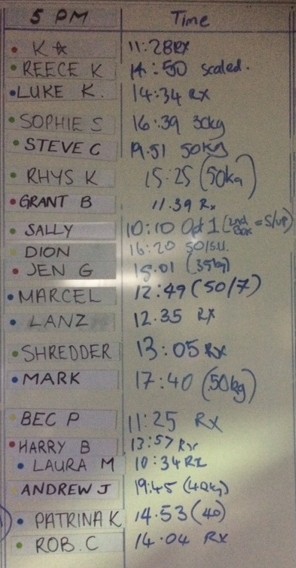 5 PM Time
K☆ 11:28 RX
REECE K 14:50 scaled.
LUKE K. 14:34 RX
SOPHIE S 16:39 30kg
STEVE C 19.51 50kg
RHYS K 15:25 (50kg)
GRANT B 11.39 Rx
SALLY 10:10 Opt 1 (2nd Box = S/UP)
DION 16:20 50/S.U.
JEN G 15.01 (35kg)
MARCEL 12:49 (50/7)
LANZ 12.35 RX
SHREDDER 13:05 RX
MARK 17:40 (50kg)
BEC P 11:25 RX
HARRY B 13:57 RX
LAURA M 10:34 RX
ANDREW J 19:45 (40kg)
PATRINA K 14.53 (40)
ROB.C 14:04 RX